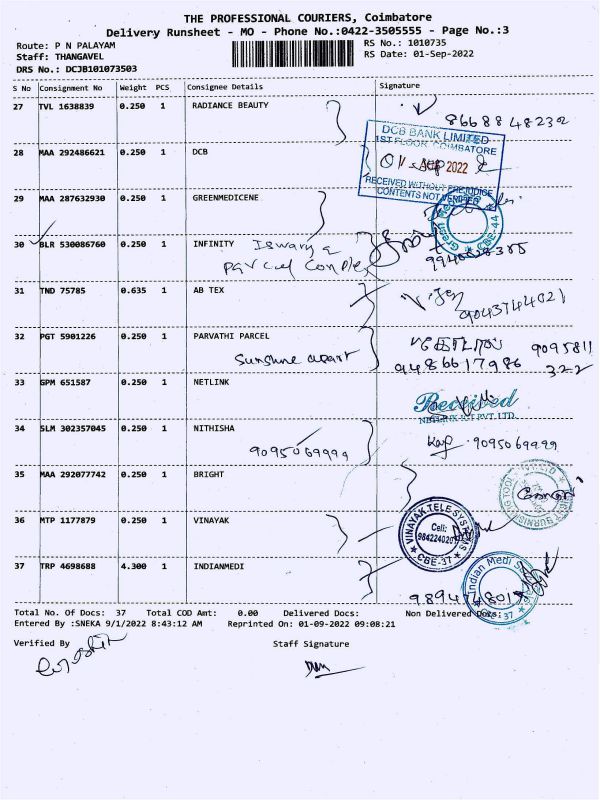 THE PROFESSIONAL COURIERS, Coimbatore
Delivery Runsheet - MO - Phone No.:0422-3505555 - Page No.:3
Route: P N PALAYAM
RS No.: 1010735
Staff: THANGAVEL
RS Date: 01-Sep-2022
DRS No.: DCJB101073503
S No Consignment No Weight PCS Consignee Details Signature
27 TVL 1638839 0.250 1 RADIANCE BEAUTY
8668848232
DCB BANK LIMITED
1ST FLOOR, COIMBATORE
28 MAA 292486621 0.250 1 DCB
2022
RECEIVED WITHOUT PREJUDICE
CONTENTS NOT VERIFIED
29 MAA 287632930 0.250 1 GREENMEDICENE
Green Med
CBE-44
30 BLR 530086760 0.250 1 INFINITY Iswarya
Parcel Complex
31 TND 75785 0.635 1 AB TEX
9043744021
32 PGT 5901226 0.250 1 PARVATHI PARCEL
Sunshine apart
9095811
9486617986 322
33 GPM 651587 0.250 1 NETLINK
Received
NETLINK ICT PVT. LTD.
34 SLM 302357045 0.250 1 NITHISHA
9095069999
9095069999
35 MAA 292077742 0.250 1 BRIGHT
36 MTP 1177879 0.250 1 VINAYAK
VINAYAK TELE SYSTEMS
Cell:
CBE-37
37 TRP 4698688 4.300 1 INDIANMEDI
Indian Medi
Total No. Of Docs: 37 Total COD Amt: 0.00 Delivered Docs: Non Delivered Docs:
Entered By :SNEKA 9/1/2022 8:43:12 AM Reprinted On: 01-09-2022 09:08:21
Verified By
Staff Signature